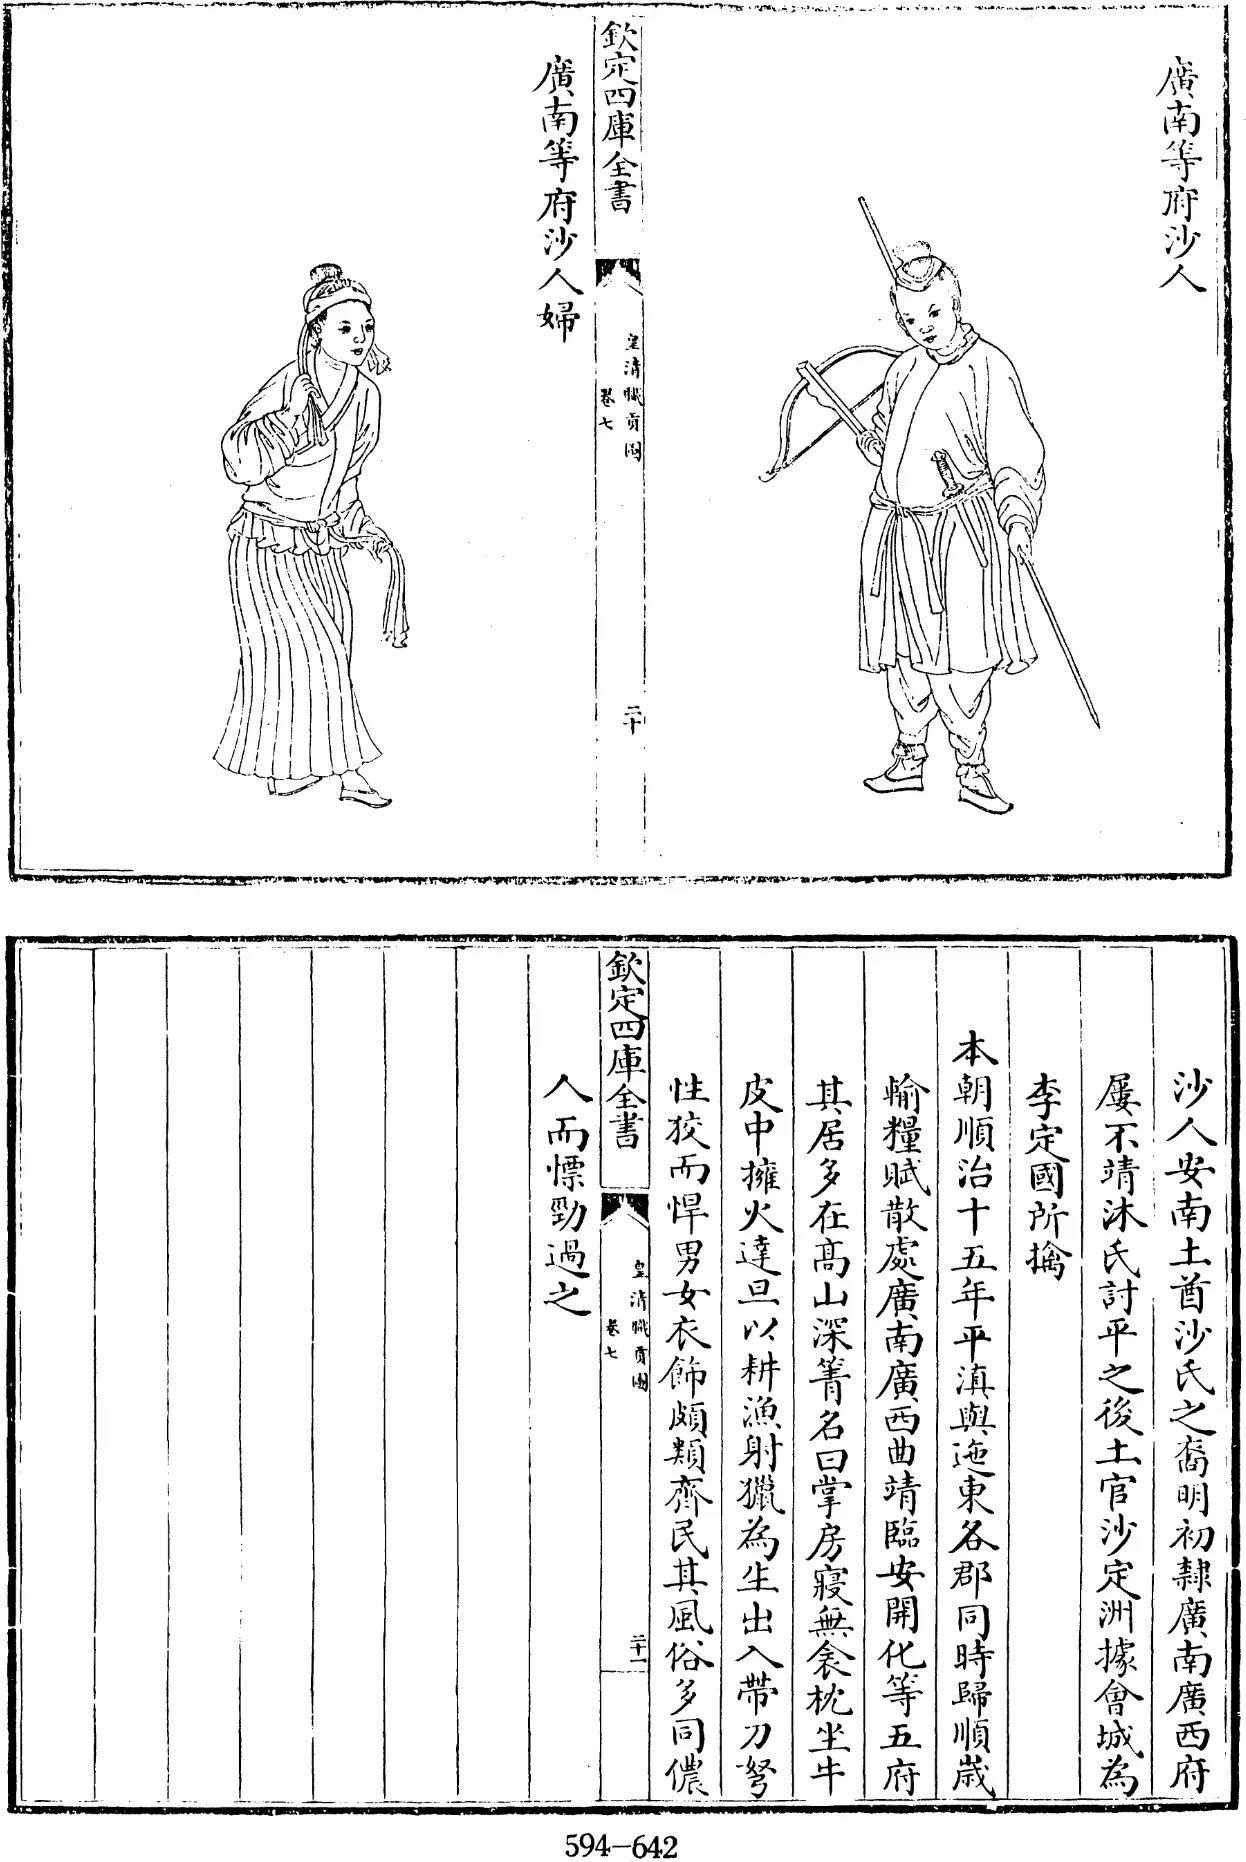 廣南等府沙人
欽定四庫全書
皇清職貢圖
卷七
二十
廣南等府沙人婦
沙人安南土酋沙氏之裔明初隸廣南廣西府
屢不靖沐氏討平之後土官沙定洲據會城為
李定國所擒
本朝順治十五年平滇與迤東各郡同時歸順歲
輸糧賦散處廣南廣西曲靖臨安開化等五府
其居多在高山深箐名曰掌房寢無衾枕坐牛
皮中擁火達旦以耕漁射獵為生出入帶刀弩
性狡而悍男女衣飾頗類齊民其風俗多同儂
欽定四庫全書
皇清職貢圖
卷七
二十一
人而慓勁過之
594-642